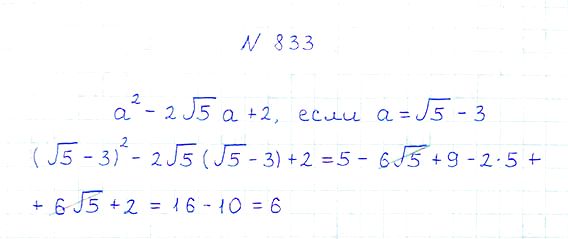 N 833
a² - 2√5 a + 2, если a = √5 - 3
(√5 - 3)² - 2√5 (√5 - 3) + 2 = 5 - 6√5 + 9 - 2·5 +
+ 6√5 + 2 = 16 - 10 = 6